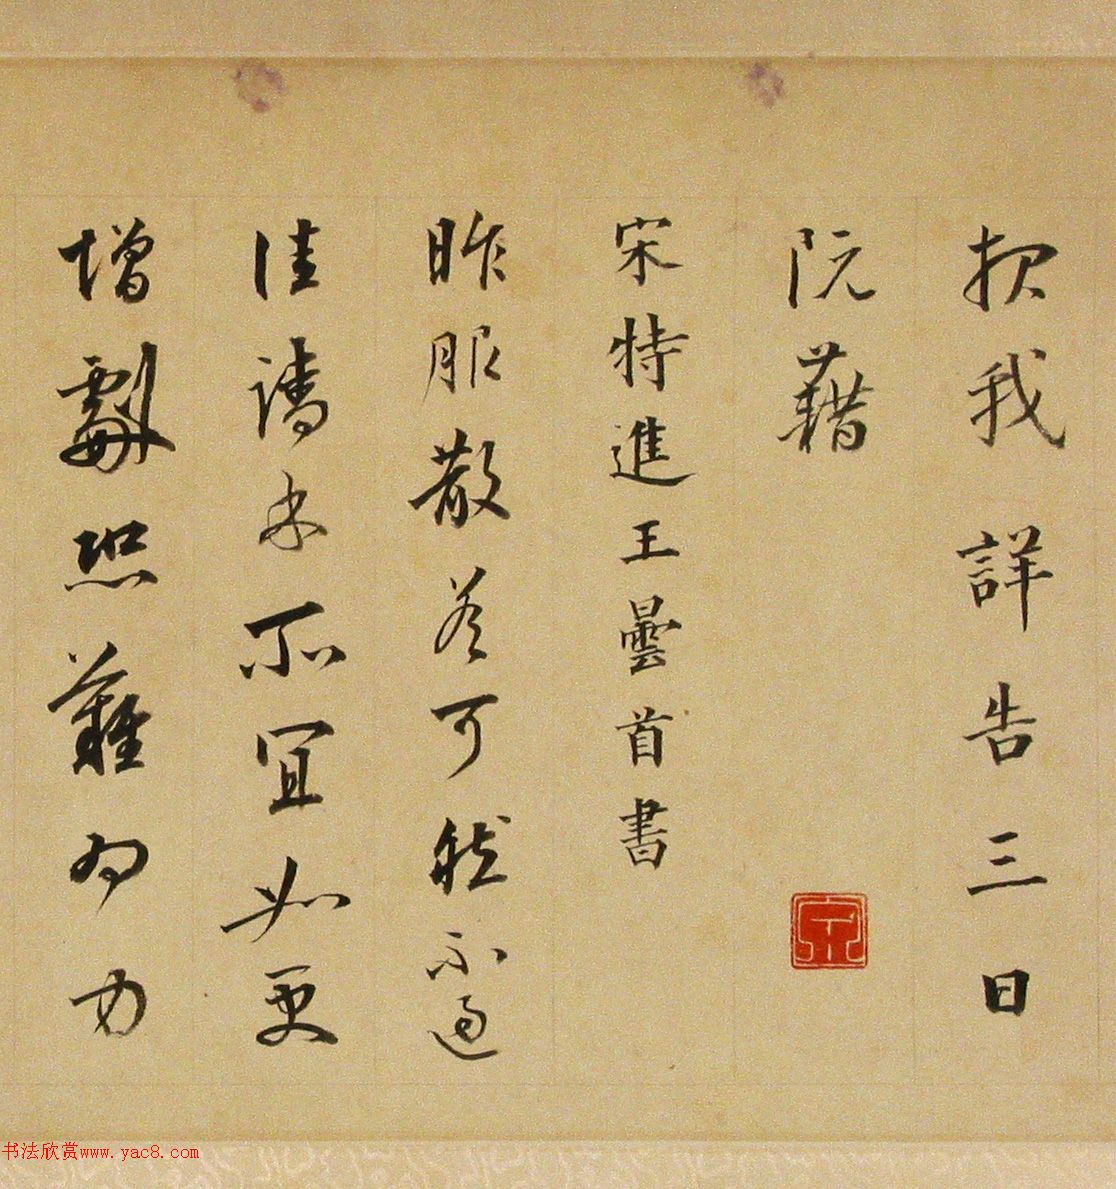 我詳告三日
阮藉
宋特進王曇首書
昨服散差可然不過
佳請所宜如更
增劇恐難為力
书法欣赏www.yac8.com